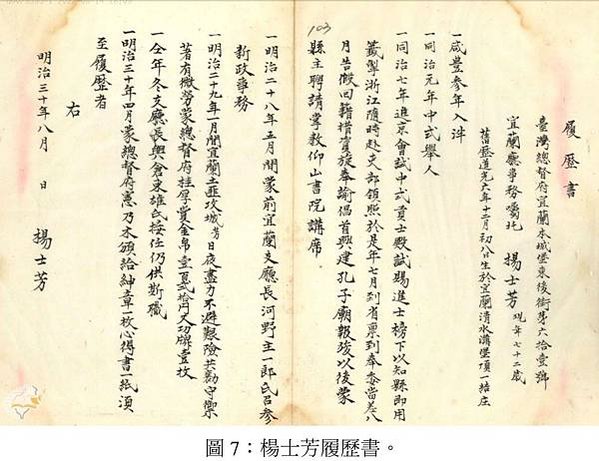 履歷書
臺灣總督府宜蘭本城堡東後街第六拾壹號
宜蘭廳事務囑託 楊士芳 現年七十二歲
舊歷道光六年十二月初八日生於宜蘭清水溝堡項一結庄
一咸豐參年入泮
一同治元年中式舉人
一同治七年進京會試中式貢士殿試賜進士榜下以知縣即用
籤掣浙江隨時赴支部領照於是年七月到省稟到奉委當差八
月告假回籍措資旋奉諭倡首興建孔子廟報竣以後蒙
縣主聘請掌教仰山書院講席
103
一明治二十八年五月間蒙前宜蘭支廳長河野主一郎氏召參
新政事務
一明治二十九年一月間宜蘭土匪攻城芳日夜盡力不避艱險共勷守禦
著有微勞蒙總督府挂厚賞金帛壹百貳拾円又功牌壹枚
一仝年冬支廳長與倉東雄氏接任仍供斯職
一明治三十年四月蒙總督府憲乃木頒給紳章一枚心得書一紙須
至履歷者
右
明治三十年八月 日 楊士芳
圖 7：楊士芳履歷書。